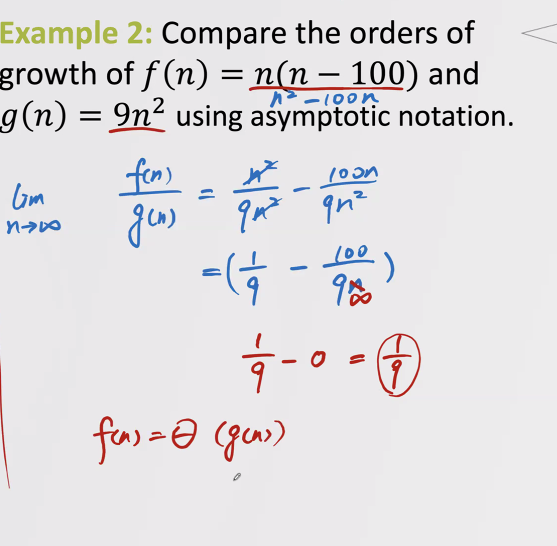 Example 2: Compare the orders of
growth of f(n) = n(n − 100) and
n² − 100n
g(n) = 9n² using asymptotic notation.
lim n→∞ f(n)/g(n) = n²/9n² − 100n/9n²
= (1/9 − 100/9n ∞)
1/9 − 0 = 1/9
f(n) = Θ (g(n))